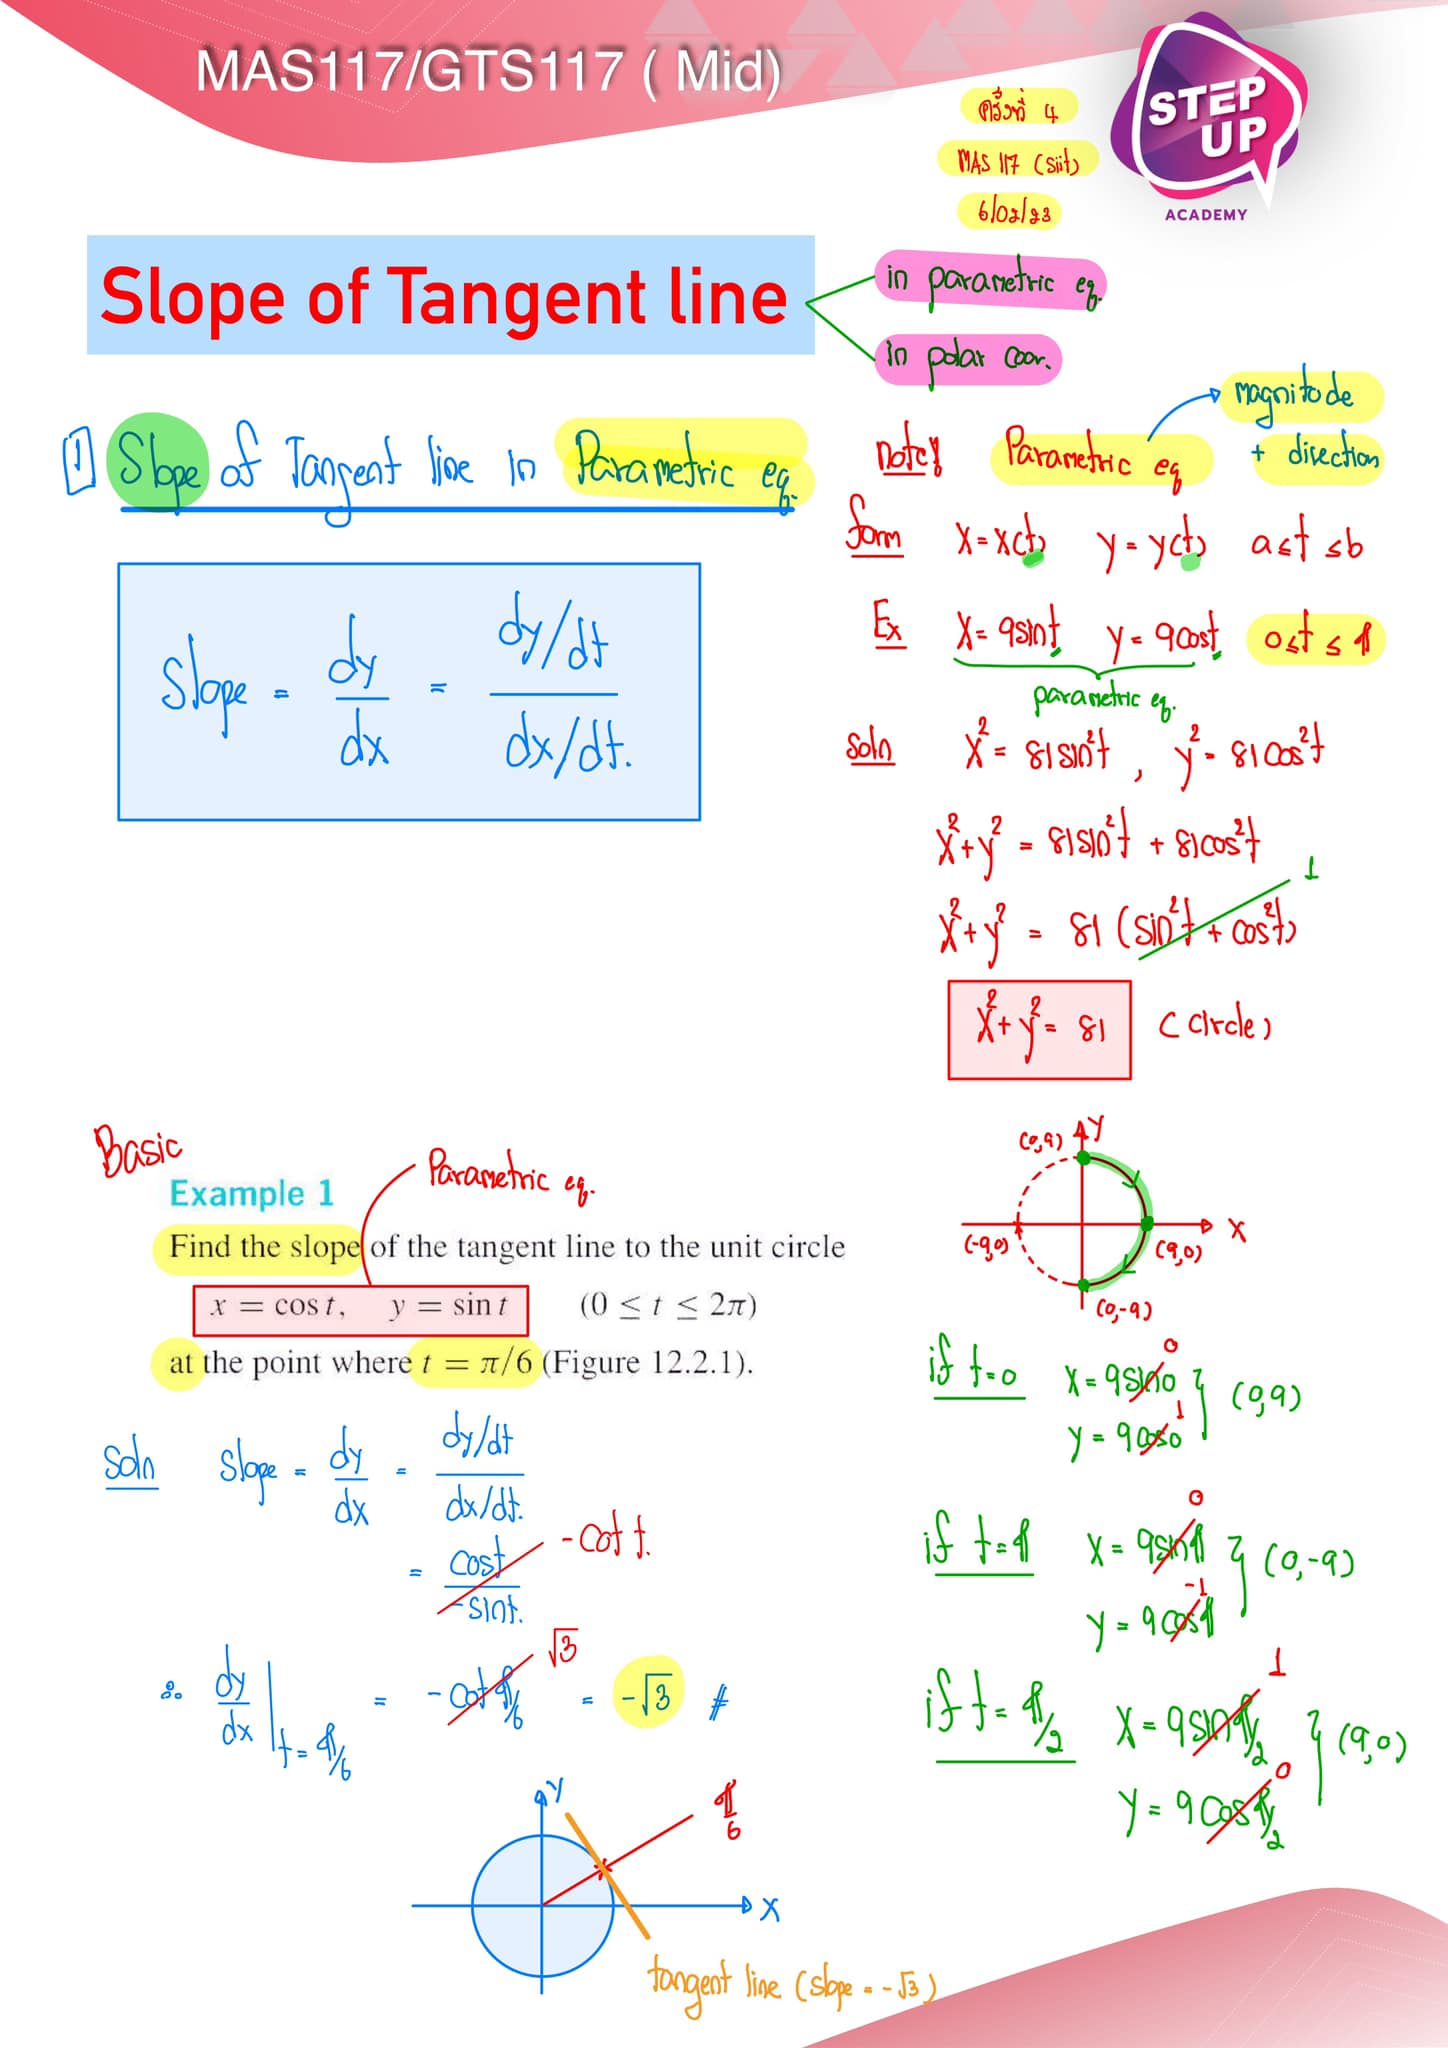 MAS117/GTS117 ( Mid)
ครั้งที่ 4
MAS 117 (siit)
6/02/23
STEP
UP
ACADEMY
Slope of Tangent line
in parametric eq.
in polar coor.
1 Slope of Tangent line in Parametric eq.
Slope = dy/dx = (dy/dt)/(dx/dt).
note! Parametric eq → magnitude
+ direction
form x = x(t) y = y(t) a ≤ t ≤ b
Ex x = 9sint y = 9cost 0 ≤ t ≤ π
parametric eq.
Soln x² = 81sin²t , y² = 81cos²t
x² + y² = 81sin²t + 81cos²t
1
x² + y² = 81 (sin²t + cos²t)
x² + y² = 81 (circle)
(0,9) y
x
(-9,0) (9,0)
(0,-9)
if t=0 x = 9sin0 0
y = 9cos0 1
(0,9)
if t=π x = 9sinπ 0
y = 9cosπ -1
(0,-9)
if t=π/2 x = 9sinπ/2 1
y = 9cosπ/2 0
(9,0)
Basic
Parametric eq.
Example 1
Find the slope of the tangent line to the unit circle
x = cos t, y = sin t (0 ≤ t ≤ 2π)
at the point where t = π/6 (Figure 12.2.1).
Soln Slope = dy/dx = (dy/dt)/(dx/dt).
= cost/-sint. -cot t.
∴ dy/dx | t=π/6 = -cot π/6 √3 = -√3 #
y
π/6
x
tangent line (slope = -√3)